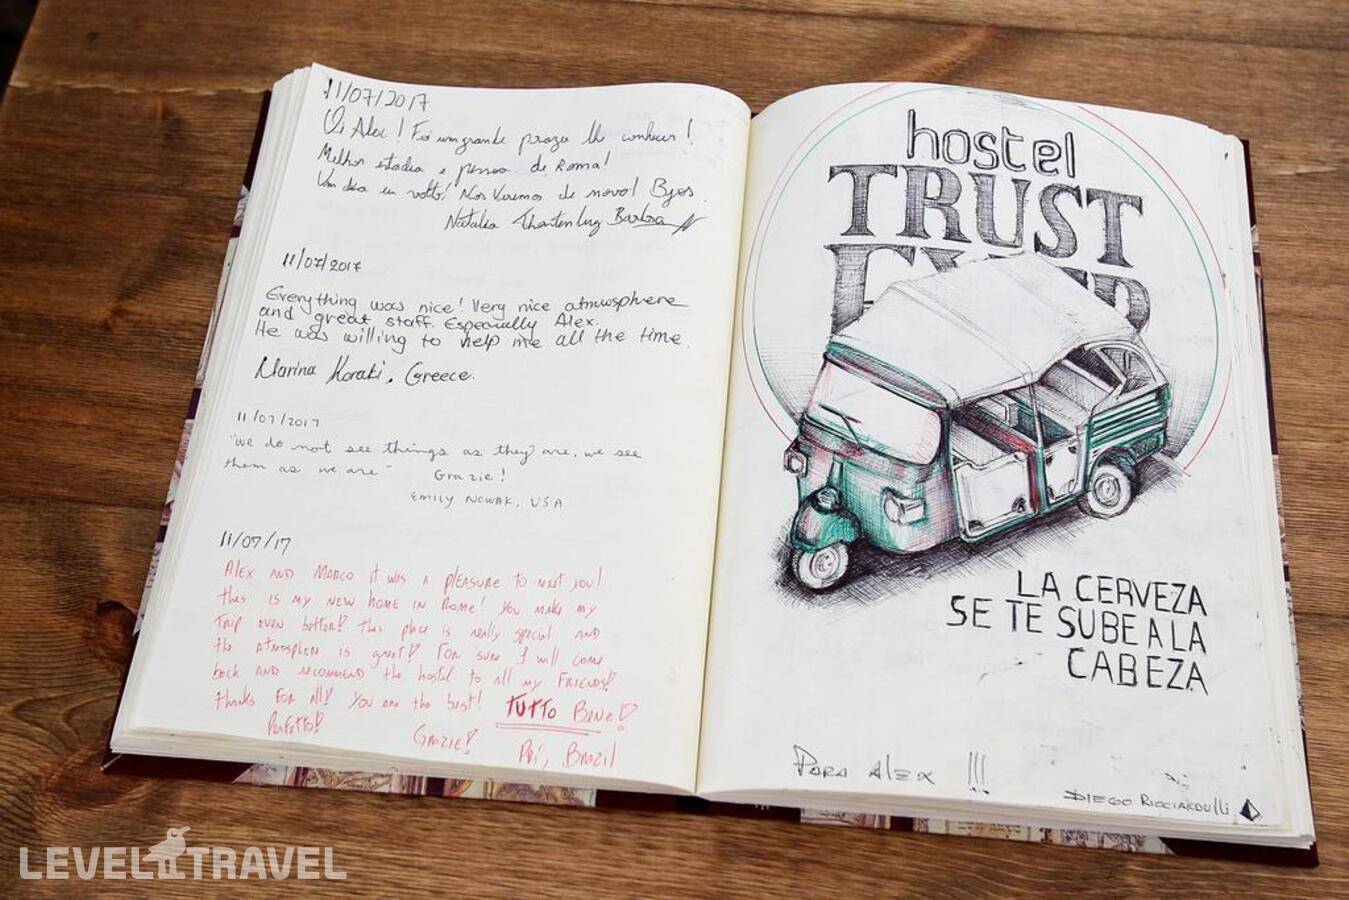 11/07/2017
Oi Alex! Foi um grande prazer lhe conhecer!
Melhor estadia e pessoa de Roma!
Um dia eu volto! Nos veremos de novo! Byes.
Natalia Barbosa
11/07/2017
Everything was nice! Very nice atmosphere
and great staff. Especially Alex.
He was willing to help me all the time.
Marina Koraki, Greece.
11/07/2017
"we do not see things as they are, we see
them as we are" Grazie!
EMILY NOWAK, USA
11/07/17
ALEX AND MARCO it was a pleasure to meet you!
this is my new home in Rome! you make my
trip even better! this place is really special and
the atmosphere is great! For sure I will come
back and recommend the hostel to all my FRIENDS!
thanks for all! You are the best! TUTTO BENE!
Perfetto! GRAZIE!
Pri, Brazil
hostel
TRUST
LA CERVEZA
SE TE SUBE A LA
CABEZA
PARA ALEX !!!
DIEGO RICCIARDULLI
LEVEL TRAVEL